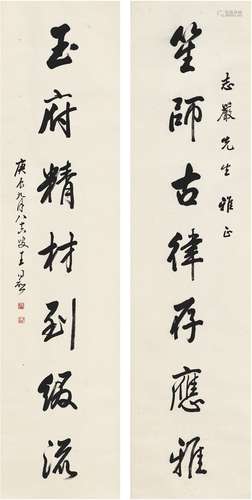 笙師古律存應雅
志嚴先生雅正
玉府精材到㲄流
庚辰九月八十叟王同愈